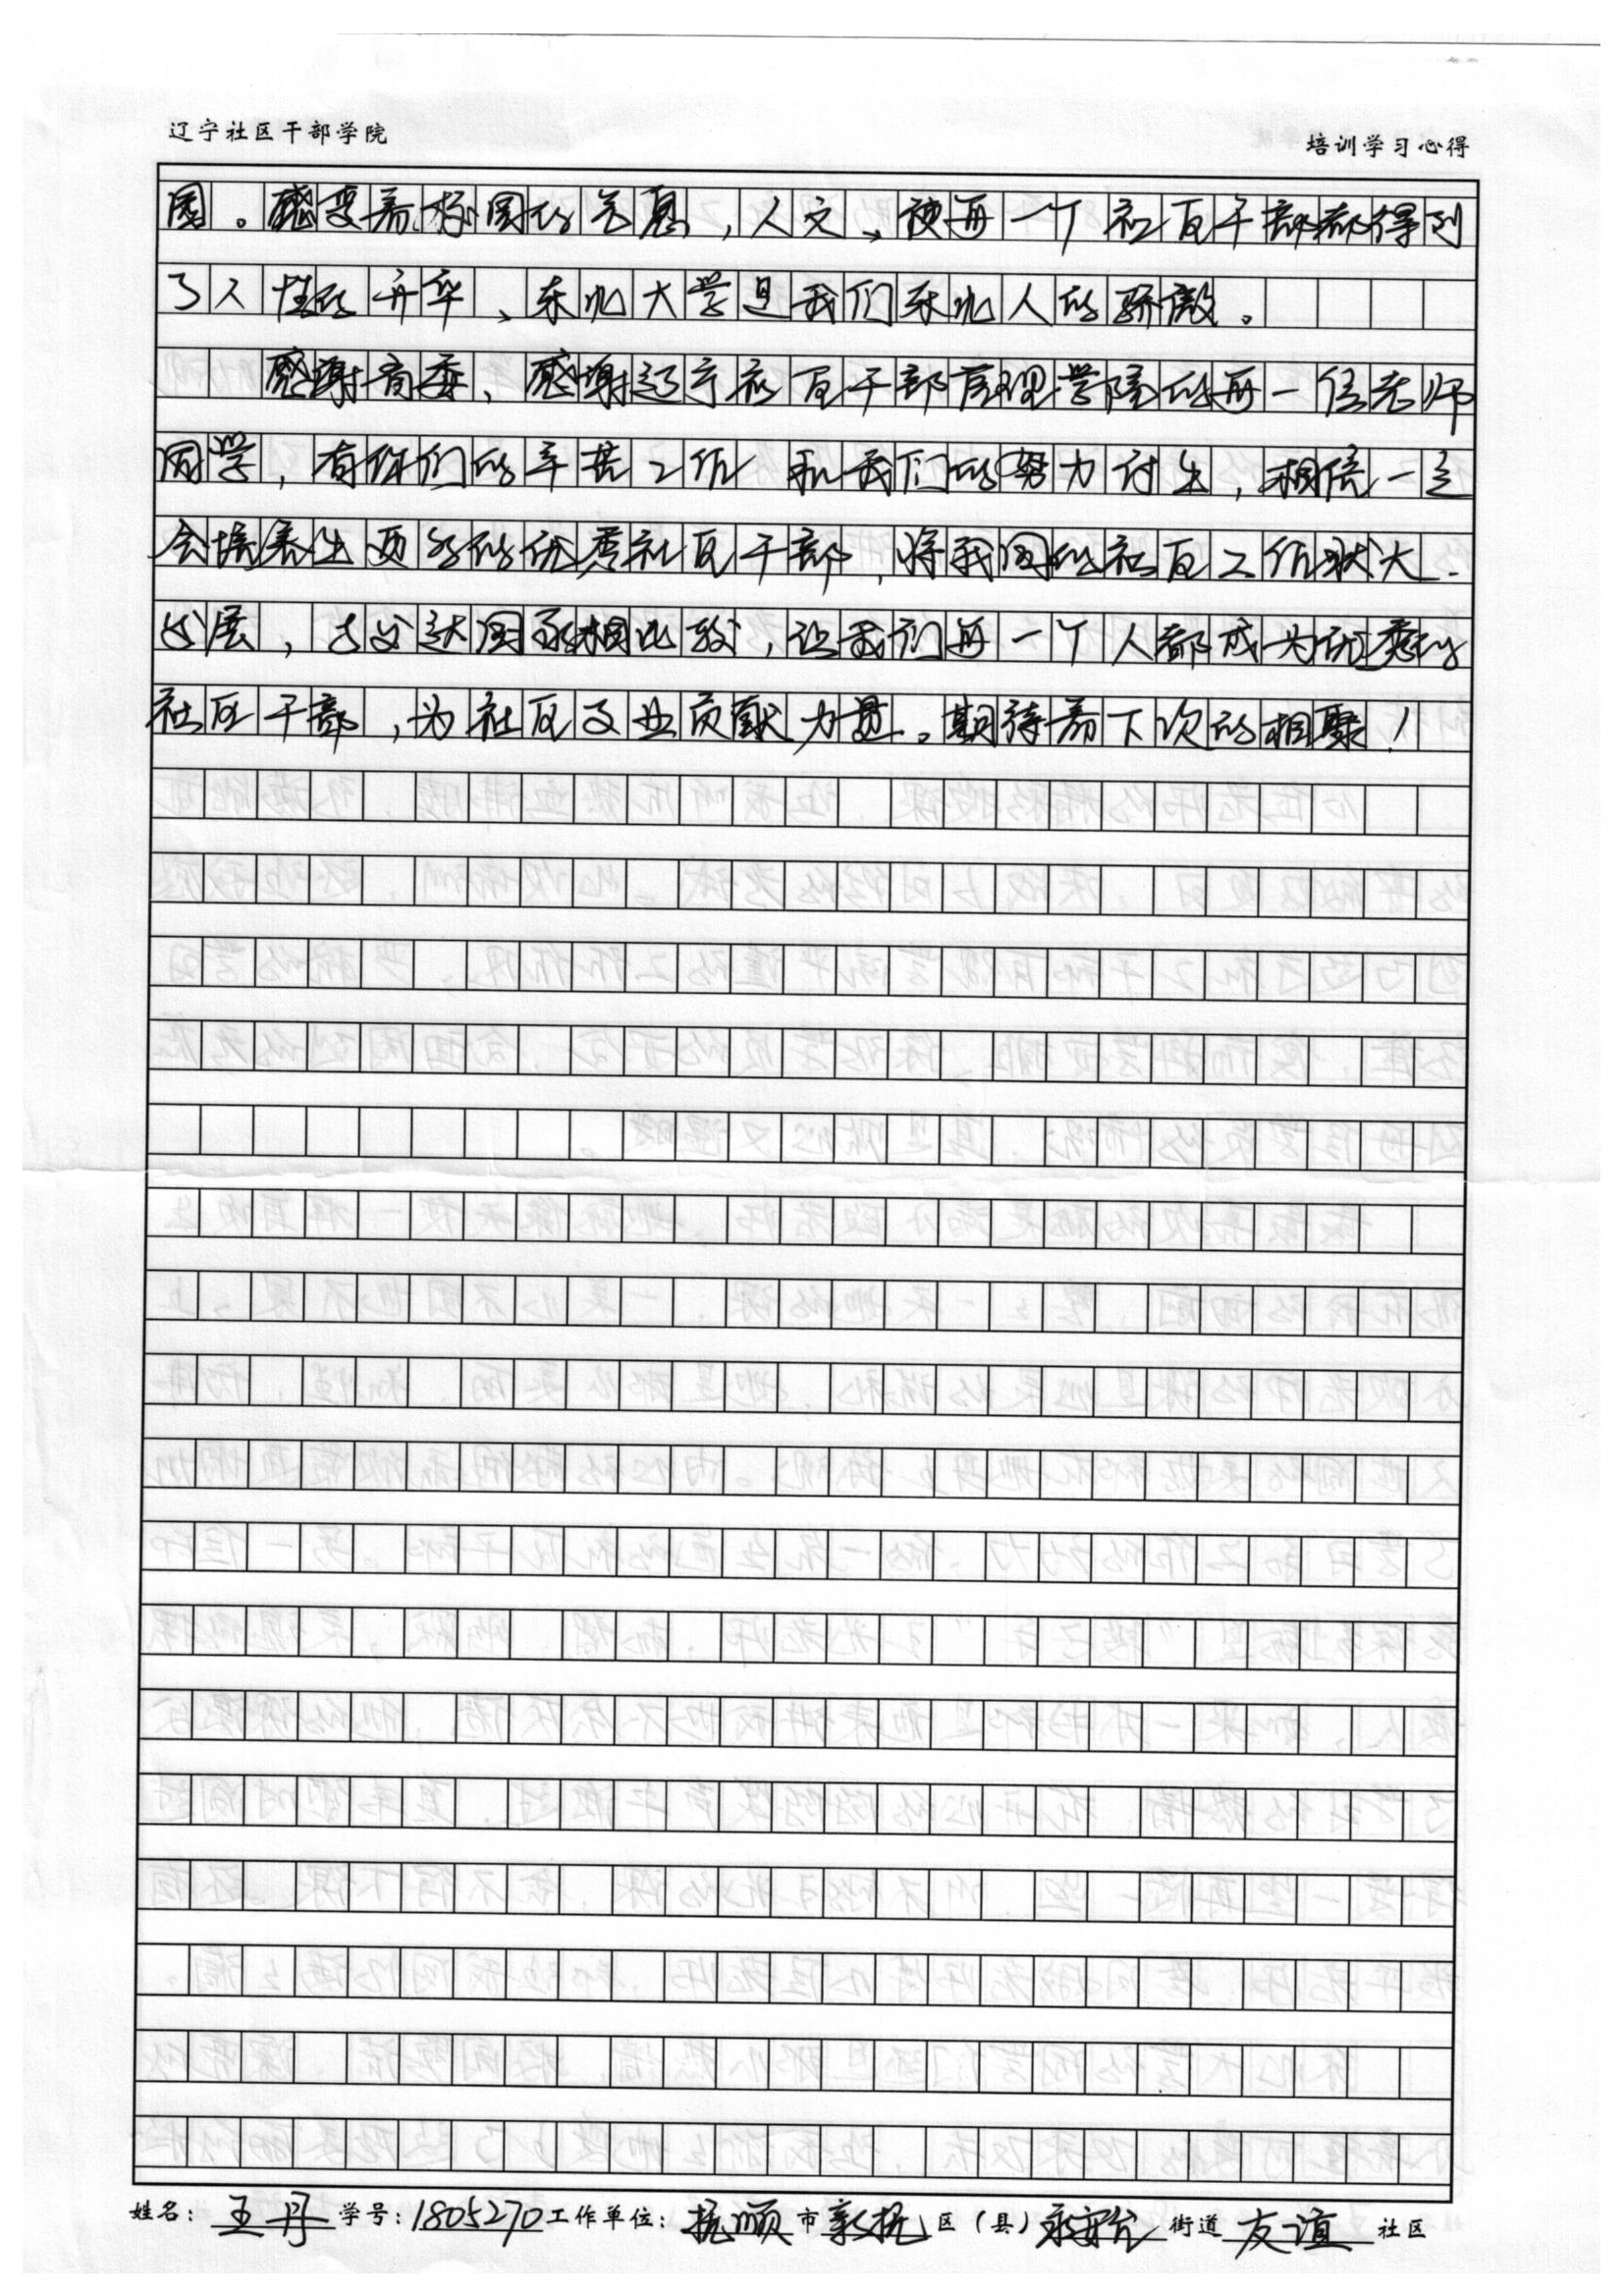 辽宁社区干部学院
培训学习心得
园。感受着校园的气息,人文、使每一个社区干部都得到
了人性的升华、东北大学是我们东北人的骄傲。
感谢省委、感谢辽宁社区干部管理学院的每一位老师
同学,有你们的辛苦工作和我们的努力付出,相信一定
会培养出更多的优秀社区干部,将我国的社区工作状大.
发展,与发达国家相比较,让我们每一个人都成为优秀的
社区干部,为社区事业贡献力量。期待着下次的相聚!
姓名:王丹 学号:1805270 工作单位:抚顺市新抚区(县)永安台街道友谊社区